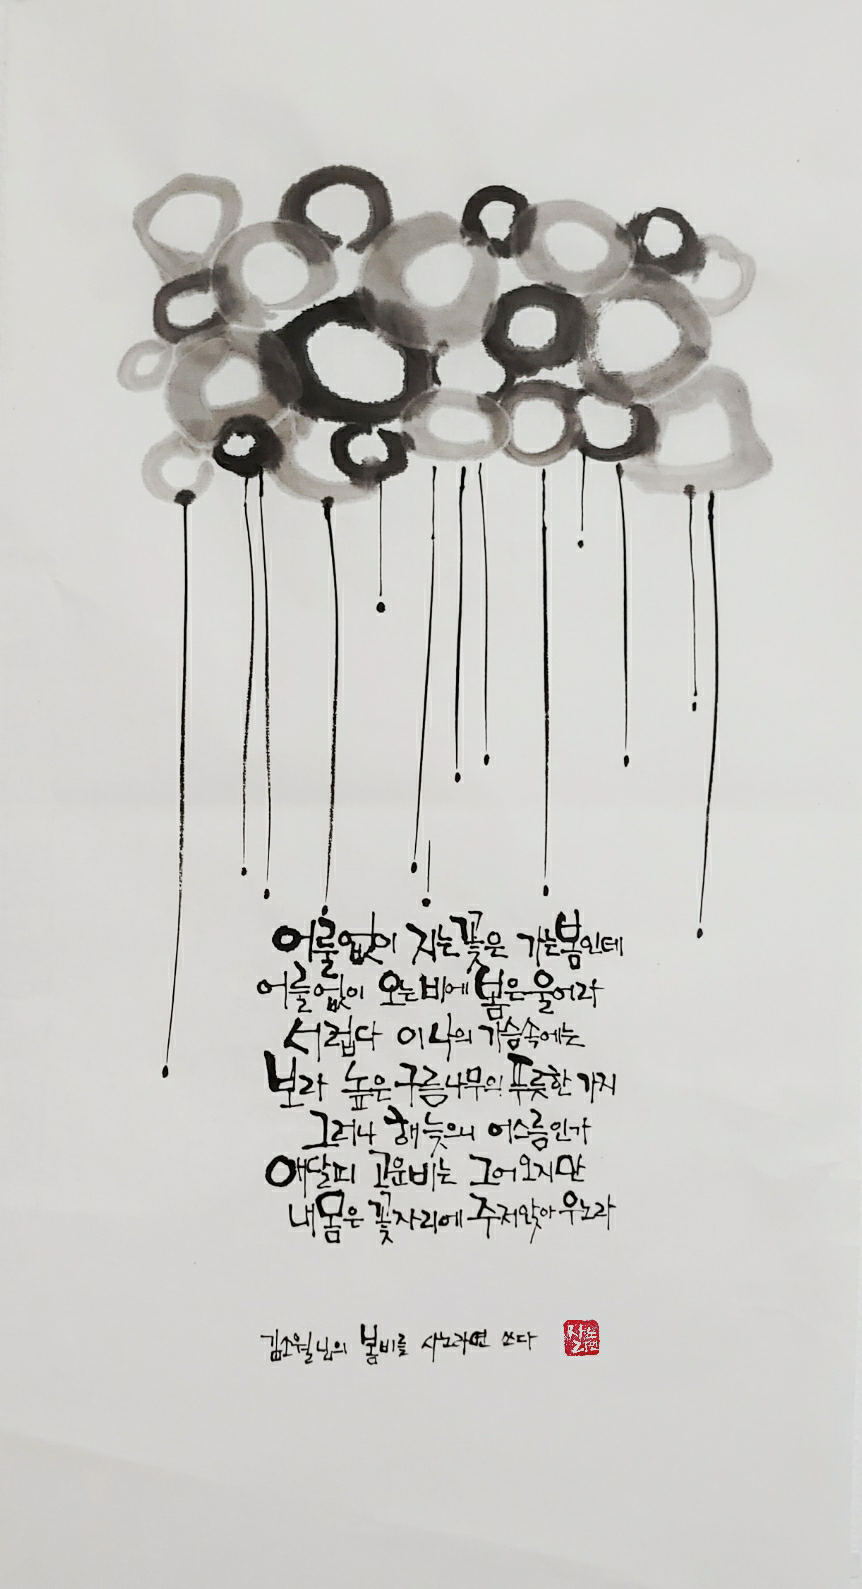 어룰없이 지는꽃은 가는봄인데
어룰없이 오는비에 봄은울어라
서럽다 이나의 가슴속에는
보라 높은구름나무의 푸릇한가지
그러나 해늦으니 어스름인가
애달피 고운비는 그어오지만
내몸은 꽃자리에 주저앉아우노라
김소월님의 봄비를 사노라면 쓰다
사노라면